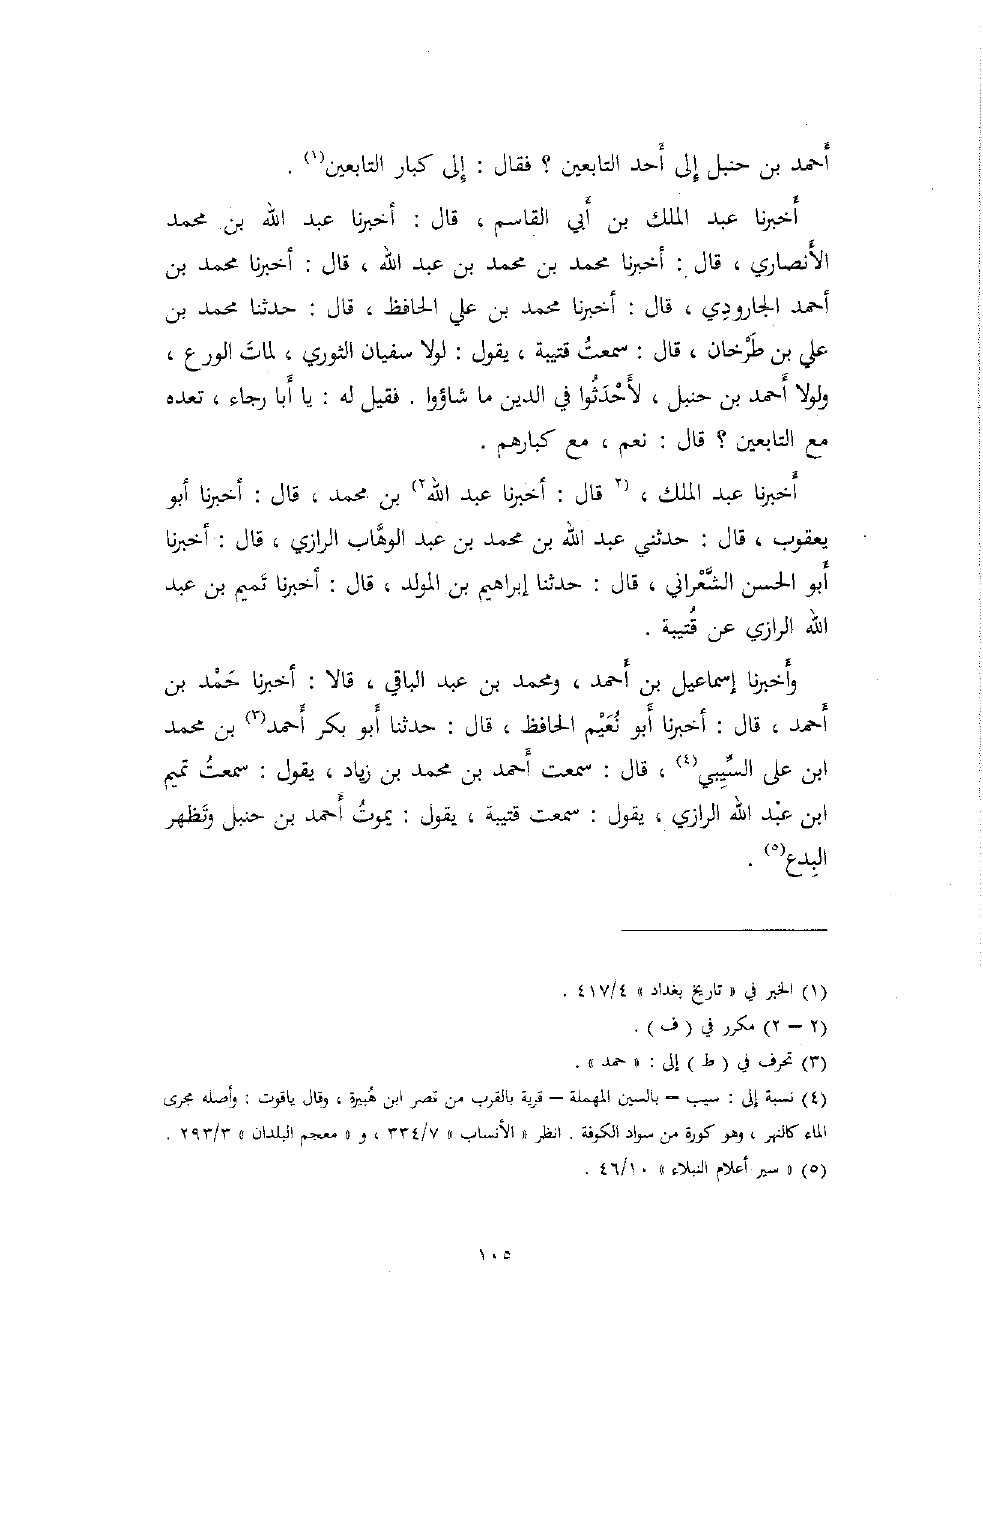 أَحمد بن حنبل إِلى أَحد التابعين ؟ فقال : إِلى كبار التابعين(١) .
أَخبرنا عبد الملك بن أَبي القاسم ، قال : أخبرنا عبد الله بن محمد
الأَنصاري ، قال : أخبرنا محمد بن محمد بن عبد الله ، قال : أخبرنا محمد بن
أحمد الجارودِي ، قال : أخبرنا محمد بن علي الحافظ ، قال : حدثنا محمد بن
علي بن طَرْخان ، قال : سمعتُ قتيبة ، يقول : لولا سفيان الثوري ، لماتَ الورع ،
ولولا أَحمد بن حنبل ، لأَحْدَثُوا في الدين ما شاؤوا . فقيل له : يا أَبا رجاء ، تعده
مع التابعين ؟ قال : نعم ، مع كبارهم .
أَخبرنا عبد الملك ، (٢ قال : أخبرنا عبد الله٢) بن محمد ، قال : أخبرنا أبو
يعقوب ، قال : حدثني عبد الله بن محمد بن عبد الوهَّاب الرازي ، قال : أخبرنا
أَبو الحسن الشَّعْراني ، قال : حدثنا إبراهيم بن المولد ، قال : أخبرنا تَميم بن عبد
الله الرازي عن قُتيبة .
وأَخبرنا إسماعيل بن أَحمد ، ومحمد بن عبد الباقي ، قالا : أخبرنا حَمْد بن
أَحمد ، قال : أخبرنا أَبو نُعَيْم الحافظ ، قال : حدثنا أَبو بكر أَحمد(٣) بن محمد
ابن على السِّيبي(٤) ، قال : سمعت أَحمد بن محمد بن زياد ، يقول : سمعتُ تميم
ابن عبْد الله الرازي ، يقول : سمعت قتيبة ، يقول : يموتُ أَحمد بن حنبل وتَظهر
البِدع(٥) .
(١) الخبر في « تاريخ بغداد » ٤١٧/٤ .
(٢ – ٢) مكرر في ( ف ) .
(٣) تحرف في ( ط ) إلى : « حمد » .
(٤) نسبة إلى : سيب – بالسين المهملة – قرية بالقرب من قصر ابن هُبيرة ، وقال ياقوت : وأصله مجرى
الماء كالنهر ، وهو كورة من سواد الكوفة . انظر « الأنساب » ٣٣٤/٧ ، و « معجم البلدان » ٢٩٣/٣ .
(٥) « سير أعلام النبلاء » ٤٦/١٠ .
١٠٥